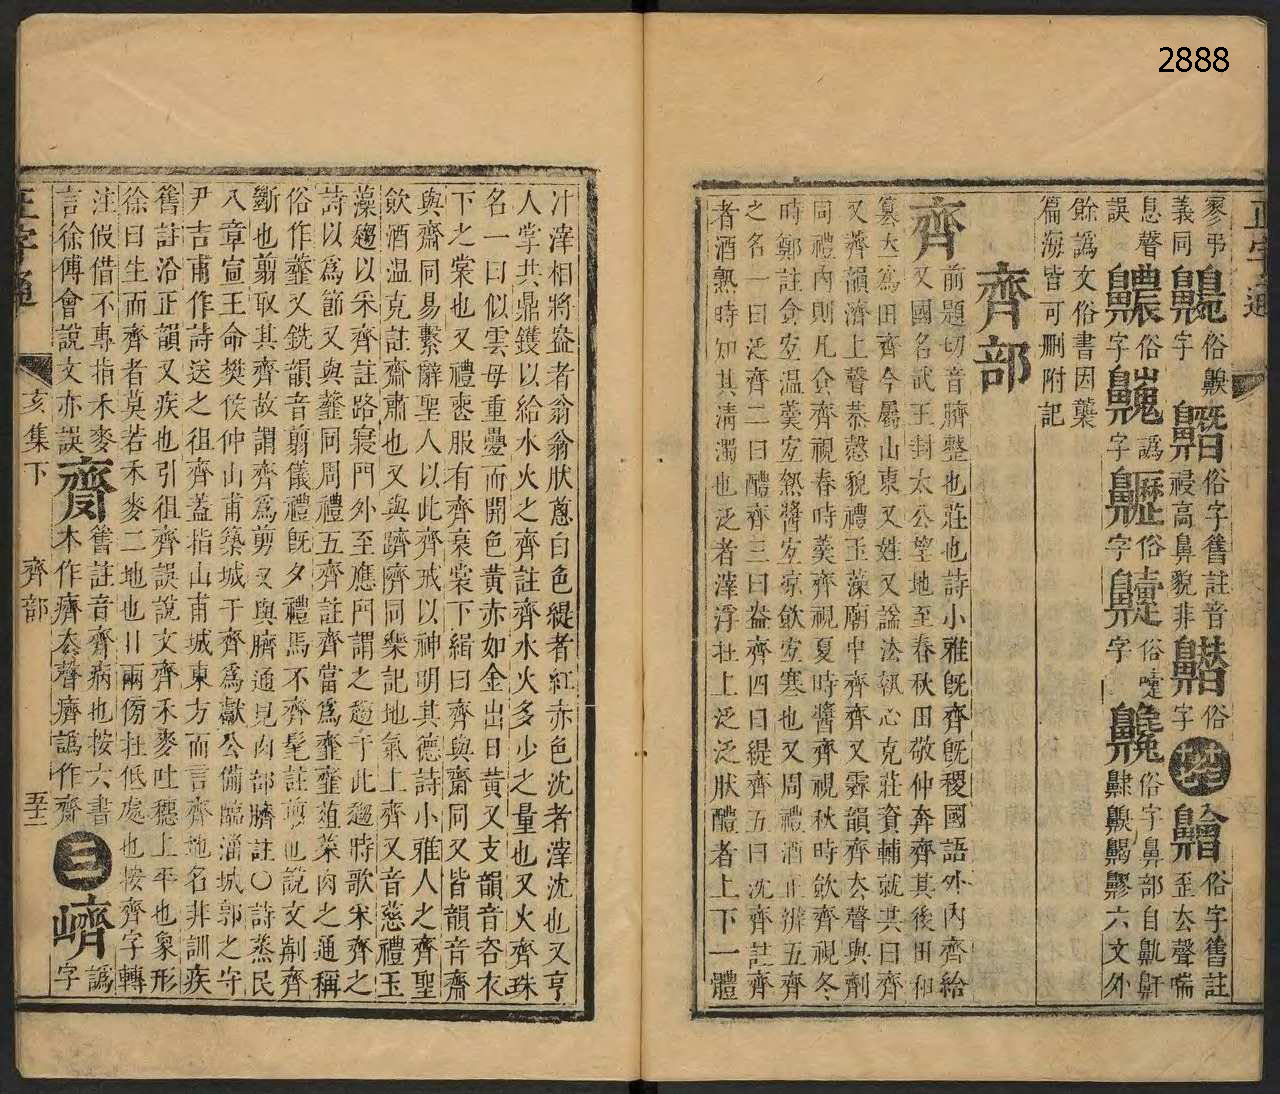 2888
齊部
齊前題切音臍整也莊也詩小雅既齊既稷國語外內齊給
又國名武王封太公望地至春秋田敬仲奔齊其後田和
篡立為田齊今屬山東又姓又諡法執心克莊資輔就共曰齊
又薺韻濟上聲恭慤貌禮玉藻廟中齊齊又霽韻齊去聲與劑
同禮內則凡食齊視春時羹齊視夏時醬齊視秋時飲齊視冬
時鄭註食宜溫羹宜熱醬宜涼飲宜寒也又周禮酒正辨五齊
之名一曰泛齊二曰醴齊三曰盎齊四曰緹齊五曰沈齊註齊
者酒熟時知其清濁也泛者滓浮在上泛泛狀醴者上下一體
汁滓相將盎者翁翁狀蔥白色緹者紅赤色沈者滓沈也又亨
人掌共鼎鑊以給水火之齊註齊水火多少之量也又火齊珠
名一曰似雲母重疊而開色黃赤如金出日黃又支韻音咨衣
下之裳也又禮喪服有齊衰裳下緝曰齊與齋同又皆韻音齋
與齋同易繫辭聖人以此齊戒以神明其德詩小雅人之齊聖
飲酒溫克註齋肅也又與躋隮同樂記地氣上齊又音慈禮玉
藻趨以采齊註路寢門外至應門謂之趨于此趨時歌采齊之
詩以為節又與虀同周禮五齊註齊當為虀虀菹菜肉之通稱
俗作虀又銑韻音翦儀禮既夕禮馬不齊髦註翦也說文剬齊
斷也翦取其齊故謂齊為剪又與臍通見肉部臍註〇詩蒸民
八章宣王命樊侯仲山甫築城于齊為獻公備臨淄城郭之守
尹吉甫作詩送之徂齊蓋指山甫城東方而言齊地名非訓疾
舊註沿正韻又疾也引徂齊誤說文齊禾麥吐穗上平也象形
徐曰生而齊者莫若禾麥二地也兩傍在低處也按齊字轉
注假借不專指禾麥
言徐傅會說文亦誤
舊註音齊病也按六書
本作癠去聲癠譌作
三
譌
字
正字通
亥集下
齊部
餘譌文俗書因襲
篇海皆可刪附記